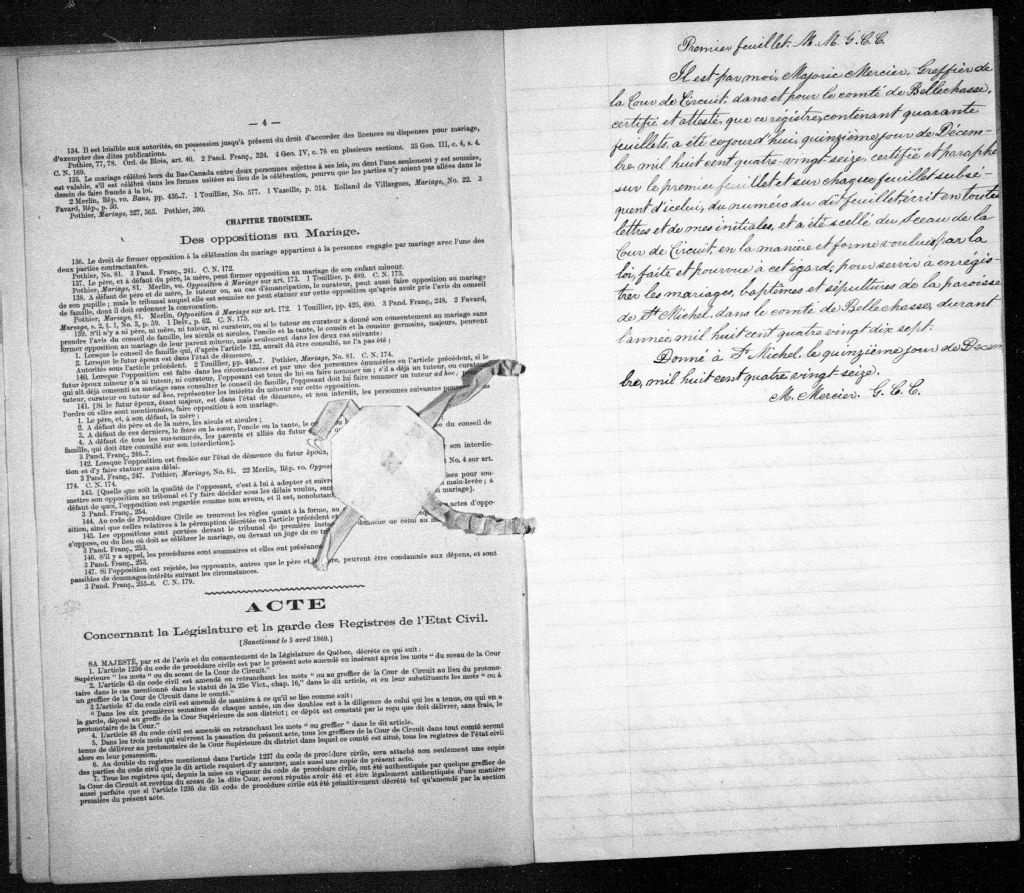 — 4 —
134. Il est loisible aux autorités, en possession jusqu'à présent du droit d'accorder des licences ou dispenses pour mariage,
d'exempter des dites publications.
Pothier, 77, 78. Ord. de Blois, art. 40. 2 Pand. Franç., 324. 4 Geo. IV, c. 76 en plusieurs sections. 35 Geo. III, c. 4, s. 4.
C. N. 169.
135. Le mariage célébré hors du Bas-Canada entre deux personnes sujettes à ses lois, ou dont l'une seulement y est soumise,
est valable, s'il est célébré dans les formes usitées au lieu de la célébration, pourvu que les parties n'y soient pas allées dans le
dessin de faire fraude à la loi.
2 Merlin, Rép. vo. Bans, pp. 436-7. 1 Touillier, No. 577. 1 Vazeille, p. 314. Rolland de Villargues, Mariage, No. 22. 3
Favard, Rép., p. 30.
Pothier, Mariage, 327, 363. Pothier, 390.
CHAPITRE TROISIEME.
Des oppositions au Mariage.
136. Le droit de former opposition à la célébration du mariage appartient à la personne engagée par mariage avec l'une des
deux parties contractantes.
Pothier, No. 81. 3 Pand. Franç., 241. C. N. 172.
137. Le père, et à défaut du père, la mère, peut former opposition au mariage de son enfant mineur.
Pothier, Mariage, 81. Merlin, vo. Opposition à Mariage sur art. 173. 1 Touillier, p. 489. C. N. 173.
138. A défaut de père et de mère, le tuteur ou, au cas d'émancipation, le curateur, peut aussi faire opposition au mariage
de son pupille ; mais le tribunal auquel elle est soumise ne peut statuer sur cette opposition qu'après avoir pris l'avis du conseil
de famille, dont il doit ordonner la convocation.
Pothier, Mariage, 81. Merlin, Opposition à Mariage sur art. 172. 1 Touillier, pp. 425, 490. 3 Pand. Franç., 248. 2 Favard,
Mariage, s. 2, § 1, No. 3, p. 59. 1 Delv., p. 62. C. N. 175.
139. S'il n'y a ni père, ni mère, ni tuteur, ni curateur, ou si le tuteur ou curateur a donné son consentement au mariage sans
prendre l'avis du conseil de famille, les aïeuls et aïeules, l'oncle et la tante, le cousin et la cousine germains, majeurs, peuvent
former opposition au mariage de leur parent mineur, mais seulement dans les deux cas suivants :
1. Lorsque le conseil de famille qui, d'après l'article 122, aurait dû être consulté, ne l'a pas été ;
2. Lorsque le futur époux est dans l'état de démence.
Autorités sous l'article précédent. 2 Touillier, pp. 446-7. Pothier, Mariage, No. 81. C. N. 174.
140. Lorsque l'opposition est faite dans les circonstances et par une des personnes énumérées en l'article précédent, si le
futur époux mineur n'a ni tuteur, ni curateur, l'opposant est tenu de lui en faire nommer un ; s'il a déjà un tuteur, ou curateur
qui ait déjà consenti au mariage sans consulter le conseil de famille, l'opposant doit lui faire nommer un tuteur ad hoc ;
tuteur, curateur ou tuteur ad hoc, représenter les intérêts du mineur sur cette opposition.
141. [Si le futur époux, étant majeur, est dans l'état de démence, et non interdit, les personnes suivantes
l'ordre où elles sont mentionnées, faire opposition à son mariage.
1. Le père, et, à son défaut, la mère ;
2. A défaut du père et de la mère, les aïeuls et aïeules ;
3. A défaut de ces derniers, le frère ou la sœur, l'oncle ou la tante, le
4. A défaut de tous les sus-nommés, les parents et alliés du futur
du conseil de
famille, qui doit être consulté sur son interdiction].
3 Pand. Franç., 246-7.
142. Lorsque l'opposition est fondée sur l'état de démence du futur époux,
son interdic-
tion et d'y faire statuer sans délai.
3 Pand. Franç., 247. Pothier, Mariage, No. 81. 22 Merlin, Rép. vo.
No. 4 sur art.
174. C. N. 174.
143. [Quelle que soit la qualité de l'opposant, c'est à lui à adopter et suivre
pour sou-
mettre son opposition au tribunal et l'y faire décider sous les délais voulus, sans
main-levée ; à
défaut de quoi, l'opposition est regardée comme non avenu, et il est, nonobstant
mariage].
3 Pand. Franç., 254.
144. Au code de Procédure Civile se trouvent les règles quant à la forme, au
actes d'oppo-
sition, ainsi que celles relatives à la péremption décrétée en l'article précédent et
145. Les oppositions sont portées devant le tribunal de première
domicile de celui au
s'oppose, ou du lieu où doit se célébrer le mariage, ou devant un juge de ce
3 Pand. Franç., 253.
146. S'il y a appel, les procédures sont sommaires et elles ont préséance.
3 Pand. Franç., 253.
147. Si l'opposition est rejetée, les opposants, autres que le père et la mère, peuvent être condamnés aux dépens, et sont
passibles de dommages-intérêts suivant les circonstances.
3 Pand. Franç., 255-6. C. N. 179.
ACTE
Concernant la Législature et la garde des Registres de l'Etat Civil.
[Sanctionné le 5 avril 1869.]
SA MAJESTÉ, par et de l'avis et du consentement de la Législature de Québec, décrète ce qui suit :
1. L'article 1236 du code de procédure civile est par le présent acte amendé en insérant après les mots " du sceau de la Cour
Supérieure " les mots " ou du sceau de la Cour de Circuit."
2. L'article 45 du code civil est amendé en retranchant les mots " ou au greffier de la Cour de Circuit au lieu du protono-
taire dans le cas mentionné dans le statut de la 25e Vict., chap. 16," dans le dit article, et en leur substituants les mots " ou à
un greffier de la Cour de Circuit dans le comté."
3 L'article 47 du code civil est amendé de manière à ce qu'il se lise comme suit :
" Dans les six premières semaines de chaque année, un des doubles est à la diligence de celui qui les a tenus, ou qui en a
la garde, déposé au greffe de la Cour Supérieure de son district ; ce dépôt est constaté par le reçu que doit délivrer, sans frais, le
protonotaire de la Cour."
4. L'article 48 du code civil est amendé en retranchant les mots " ou greffier " dans le dit article.
5. Dans les trois mois qui suivront la passation du présent acte, tous les greffiers de la Cour de Circuit dans tout comté seront
tenus de délivrer au protonotaire de la Cour Supérieure du district dans lequel ce comté est situé, tous les registres de l'état civil
alors en leur possession.
6. Au double du registre mentionné dans l'article 1237 du code de procédure civile, sera attaché non seulement une copie
des parties du code civil que le dit article requiert d'y annexer, mais aussi une copie du présent acte.
7. Tous les registres qui, depuis la mise en vigueur du code de procédure civile, ont été authentiqués par quelque greffier de
la Cour de Circuit et revêtus du sceau de la dite Cour, seront réputés avoir été et être légalement authentiqués d'une manière
aussi parfaite que si l'article 1236 du dit code de procédure civile eût été primitivement décrété tel qu'amendé par la section
première du présent acte.
Premier feuillet. M. M. G. C. C.
Il est par moi, Majoric Mercier, Greffier de
la Cour de Circuit, dans et pour le comté de Bellechasse,
certifié et attesté, que ce régistre, contenant quarante
feuillets, a été cejourd'hui, quinzième jour de Décem-
bre mil huit cent quatre-vingt-seize, certifié et paraphé
sur le premier feuillet et sur chaque feuillet subsé-
quent d'icelui, du numéro du dit feuillet, écrit en toutes
lettres et de mes initiales, et a été scellé du Sceau de la
Cour de Circuit, en la manière et forme voulues par la
loi, faite et pourvue à cet égard ; pour servir à enrégis-
trer les mariages, baptêmes et sépultures de la paroisse
de St. Michel, dans le comté de Bellechasse, durant
l'année, mil huit cent quatre vingt dix sept.
Donné à St. Michel, le quinzième jour de Décem
bre, mil huit cent quatre vingt seize.
M. Mercier. G. C. C.